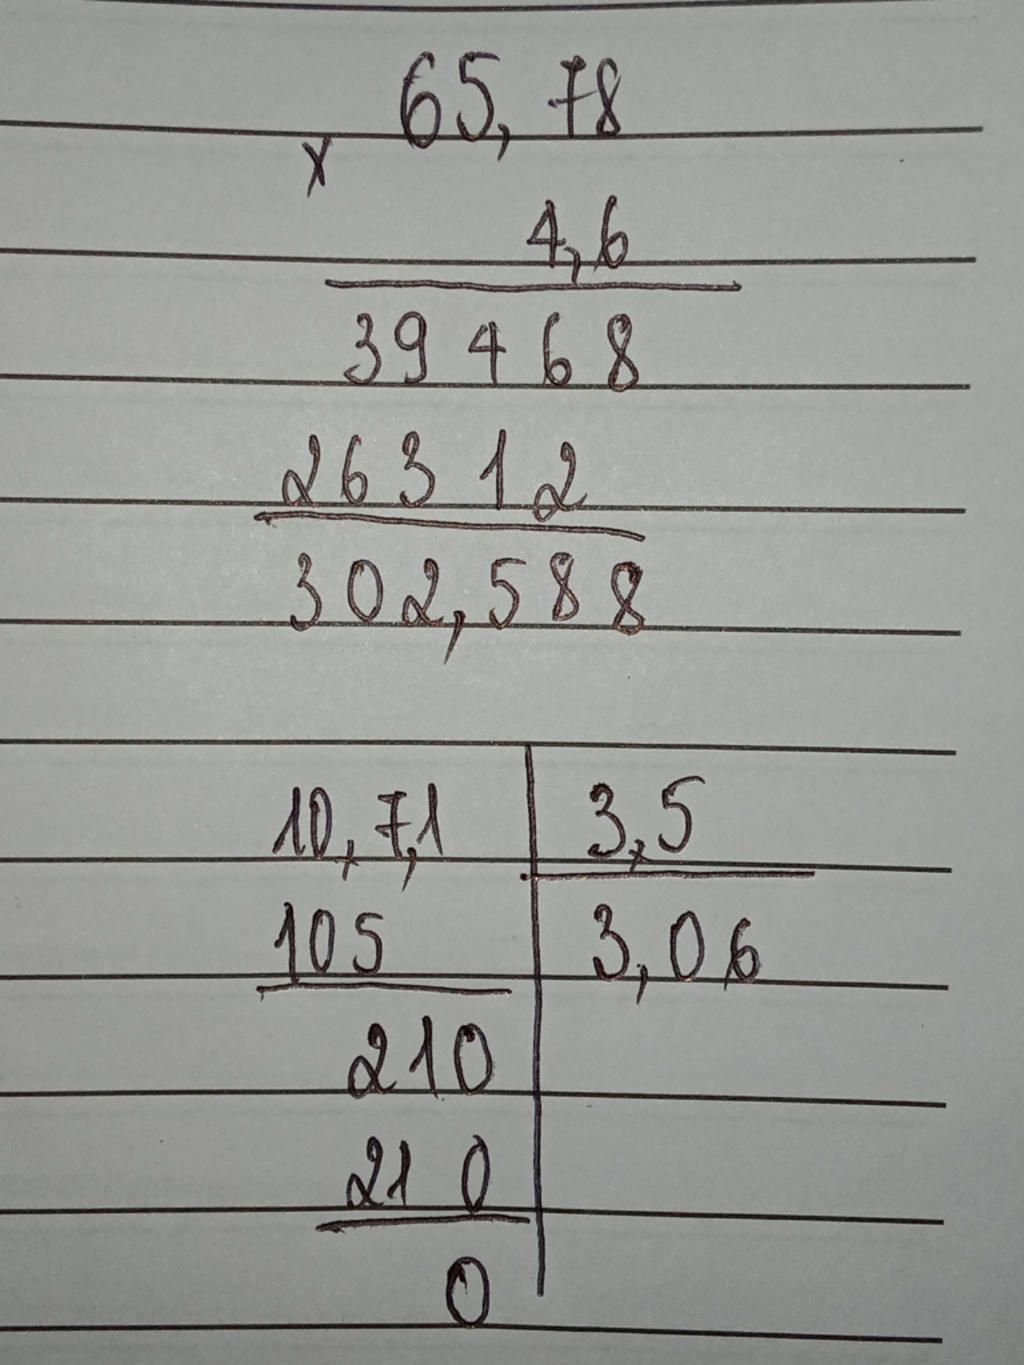 65,78
x
4,6
39 4 6 8
26 3 1 2
3 0 2,5 8 8
10,7,1 3,5
105 3,06
210
21 0
0